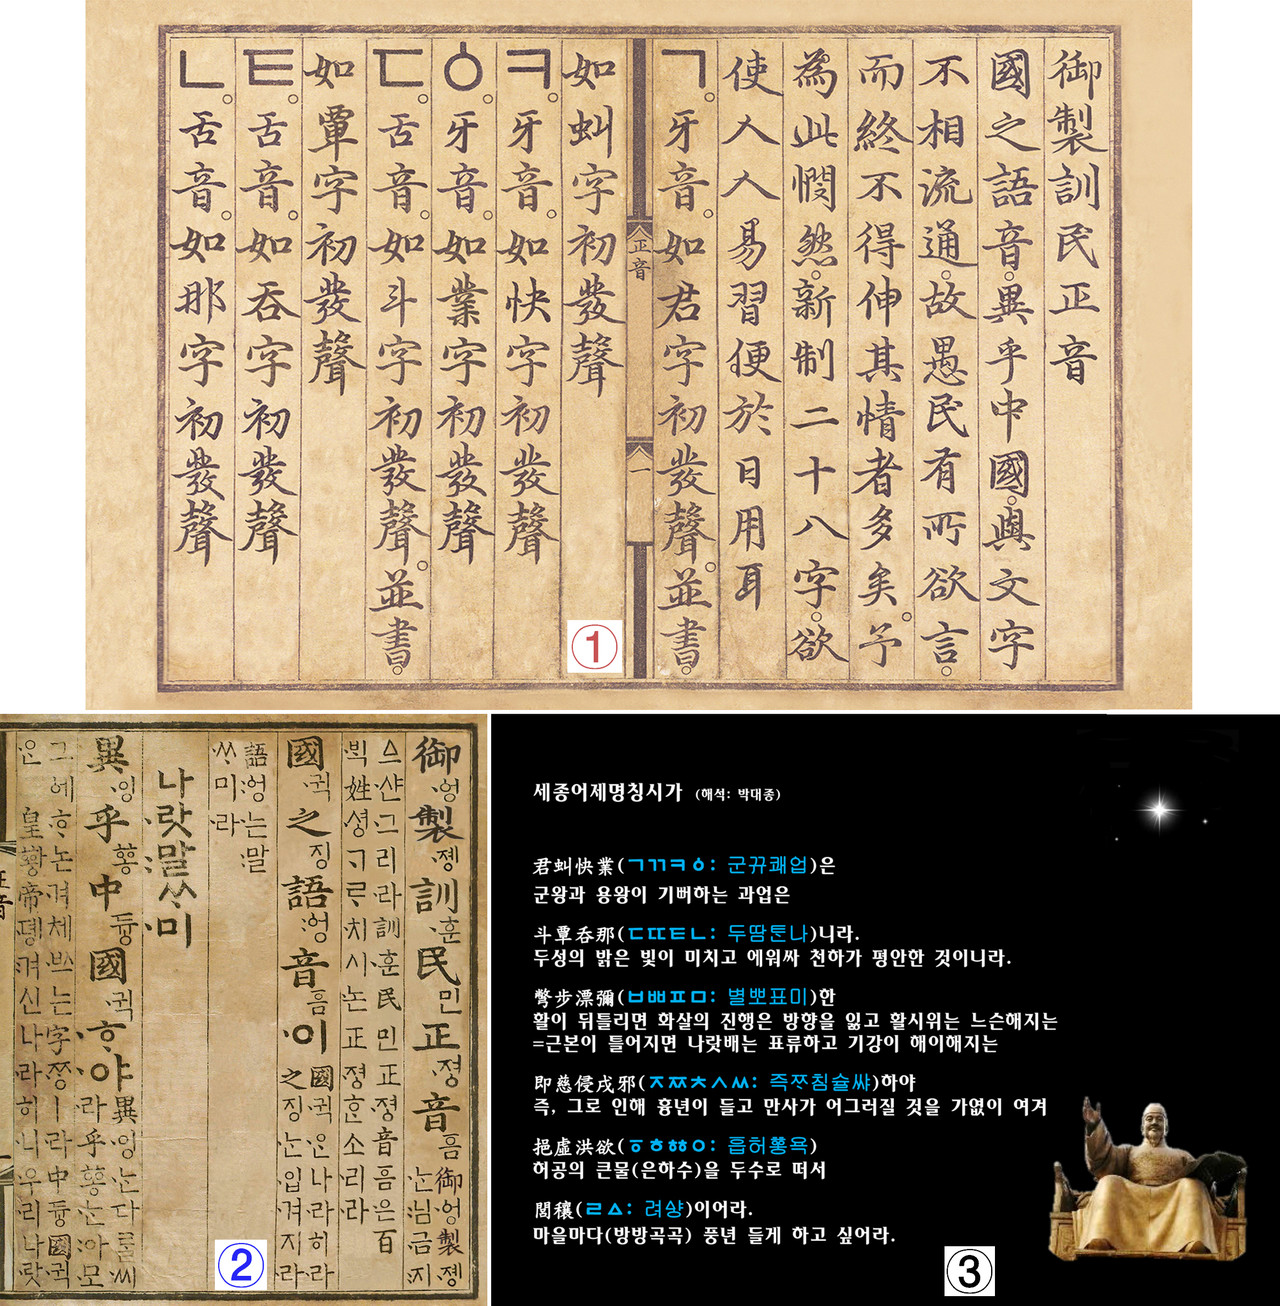 御製訓民正音
國之語音。異乎中國。與文字
不相流通。故愚民有所欲言。
而終不得伸其情者多矣。予
為此憫然。新制二十八字。欲
使人人易習便於日用耳
ㄱ。牙音。如君字初發聲。並書。
正音 一
如虯字初發聲
ㅋ。牙音。如快字初發聲
ㆁ。牙音。如業字初發聲
ㄷ。舌音。如斗字初發聲。並書。
如覃字初發聲
ㅌ。舌音。如呑字初發聲
ㄴ。舌音。如那字初發聲
①
御ᅌᅥᆼ製졩訓훈民민正졍音ᅙᅳᆷ
御ᅌᅥᆼ製졩
ᄂᆞᆫ님금지
으샨그리라訓훈民민正졍音ᅙᅳᆷ은百
ᄇᆡᆨ姓셩ᄀᆞᄅᆞ치시논正졍ᄒᆞᆫ소리라
國귁之징語ᅌᅥᆼ音ᅙᅳᆷ이
國귁ᄋᆞᆫ나라히라
之징ᄂᆞᆫ입겨지라
語ᅌᅥᆼ는말
ᄊᆞ미라
나랏말ᄊᆞ미
異잉乎ᅘᅩᆼ中듕國귁ᄒᆞ야
異잉ᄂᆞᆫ다ᄅᆞᆯ씨
라乎ᅘᅩᆼᄂᆞᆫ아모
그에ᄒᆞ논겨체ᄡᅳ는字ᄍᆞᆼㅣ라中듕國귁
ᄋᆞᆫ皇ᅘᅪᆼ帝뎽겨신나라히니우리나랏
②
세종어제명칭시가 (해석: 박대종)
君虯快業(ㄱㄲㅋㆁ: 군뀨쾌업)은
군왕과 용왕이 기뻐하는 과업은
斗覃呑那(ㄷㄸㅌㄴ: 두땀튼나)니라.
두성의 밝은 빛이 미치고 에워싸 천하가 평안한 것이니라.
彆步漂彌(ㅂㅃㅍㅁ: 별뽀표미)한
활이 뒤틀리면 화살의 진행은 방향을 잃고 활시위는 느슨해지는
=근본이 틀어지면 나랏배는 표류하고 기강이 해이해지는
即慈侵戌邪(ㅈㅉㅊㅅㅆ: 즉ᄍᆞ침슐쌰)하야
즉, 그로 인해 흉년이 들고 만사가 어그러질 것을 가엾이 여겨
挹虛洪欲(ㆆㅎㆅㅇ: ᅙᅳᆸ허ᅘᅩᆼ욕)
허공의 큰물(은하수)을 두수로 떠서
閭穰(ㄹㅿ: 려ᅀᅣᆼ)이어라.
마을마다(방방곡곡) 풍년 들게 하고 싶어라.
③